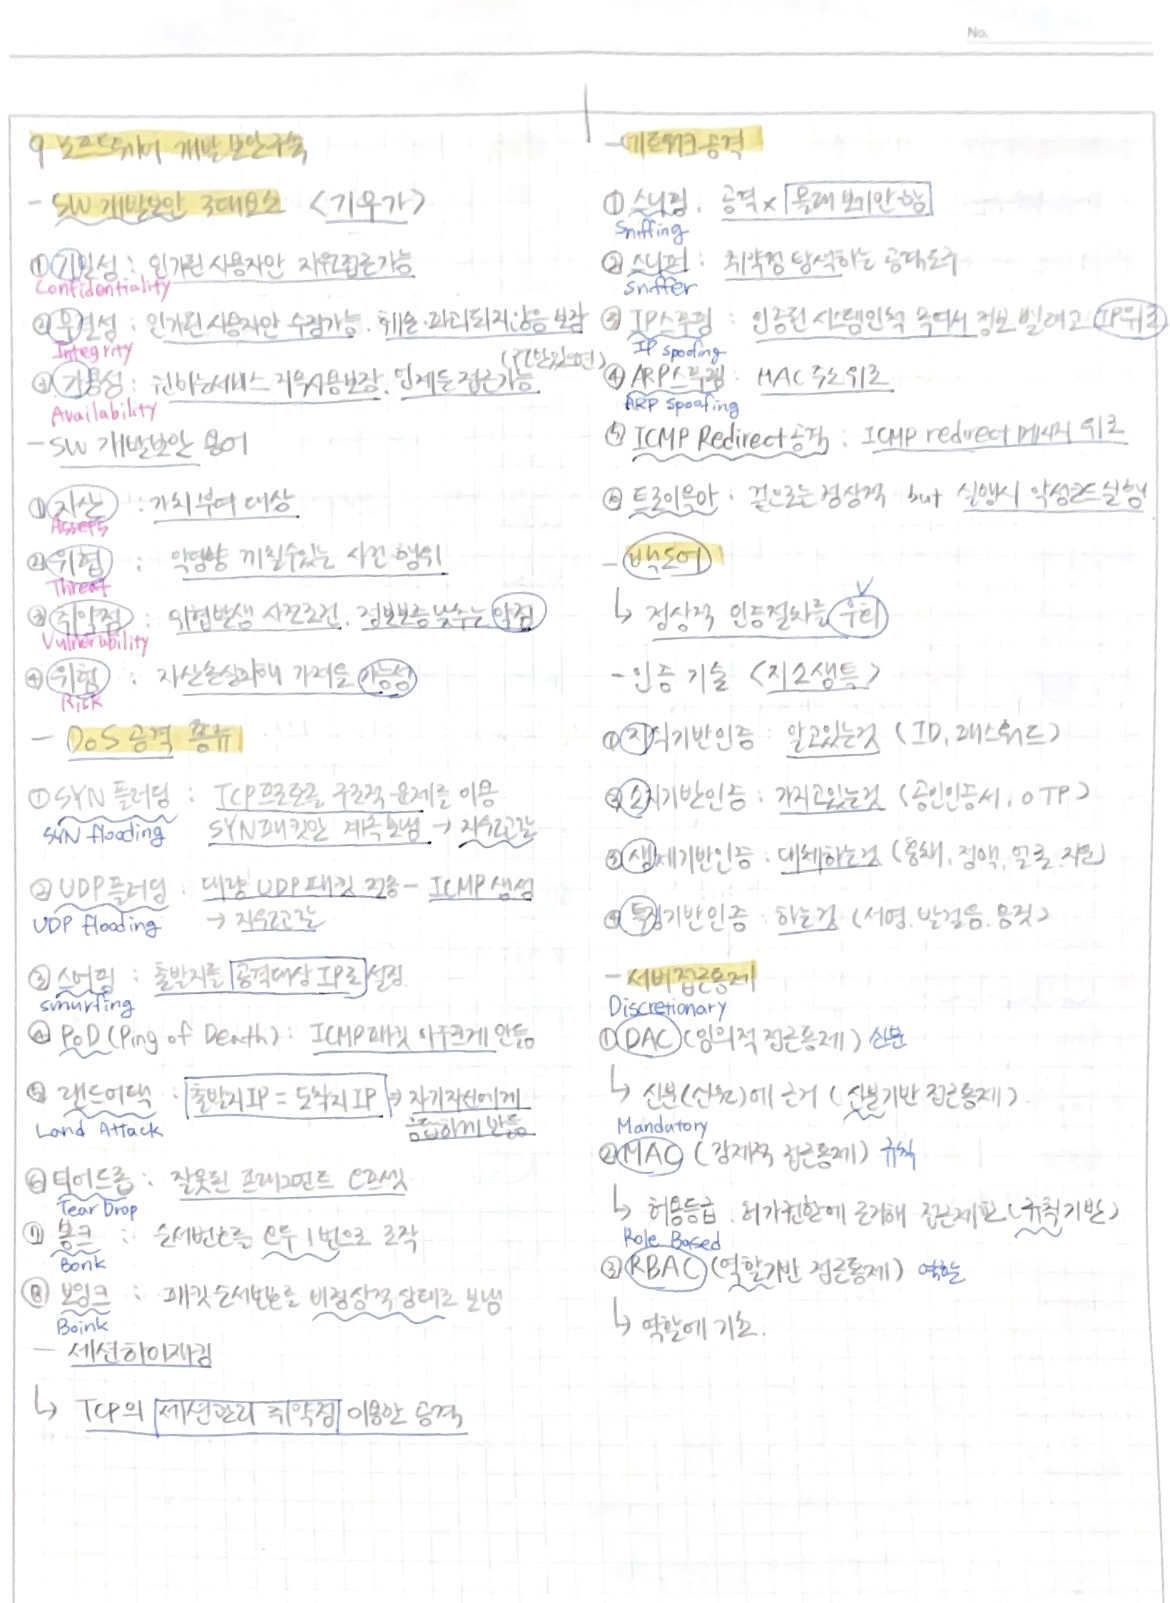 No.
9 소프트웨어 개발 보안구축
- SW 개발보안 3대요소 <기무가>
① 기밀성 : 인가된 사용자만 자원접근가능
Confidentiality
② 무결성 : 인가된 사용자만 수정가능. 훼손·파괴되지않음 보장
Integrity
(권한있으면)
③ 가용성 : 원하는서비스 지속사용보장. 언제든 접근가능
Availability
- SW 개발보안 용어
① 자산 : 가치부여 대상
Assets
② 위협 : 악영향 끼칠수있는 사건 행위
Threat
③ 취약점 : 위협발생 사전조건. 정보보증 낮추는 약점
Vulnerability
④ 위험 : 자산손실피해 가져올 가능성
Risk
- DoS 공격 종류
① SYN 플러딩 : TCP프로토콜 구조적 문제를 이용
SYN flooding SYN패킷만 계속보냄 → 자원고갈
② UDP플러딩 : 대량 UDP패킷 전송 - ICMP생성
UDP flooding → 자원고갈
③ 스머핑 : 출발지를 공격대상 IP로 설정
smurfing
④ PoD (Ping of Death) : ICMP패킷 아주크게 만듦
⑤ 랜드어택 : 출발지IP = 도착지IP → 자기자신에게
Land Attack 응답하게 만듦
⑥ 티어드롭 : 잘못된 프래그먼트 오프셋
Tear Drop
⑦ 봉크 : 순서번호를 모두 1번으로 조작
Bonk
⑧ 보잉크 : 패킷순서번호를 비정상적 상태로 보냄
Boink
- 세션하이재킹
↳ TCP의 세션관리 취약점 이용한 공격
- 네트워크 공격
① 스니핑. 공격 x 몰래 보기만 함
Sniffing
② 스니퍼 : 취약점 탐색하는 공격도구
Sniffer
③ IP스푸핑 : 인증된 시스템인척 속여서 정보 빌려고 IP위조
IP spoofing
④ ARP스푸핑 : MAC 주소위조
ARP Spoofing
⑤ ICMP Redirect 공격 : ICMP redirect 메시지 위조
⑥ 트로이목마. 겉으로는 정상적 but 실행시 악성코드 실행
- 백도어
↳ 정상적 인증절차를 우회
- 인증 기술 <지소생특>
① 지식기반인증 : 알고있는것 (ID, 패스워드)
② 소지기반인증 : 가지고있는것 (공인인증서, OTP)
③ 생체기반인증 : 대체하는것 (홍채, 정맥, 얼굴, 지문)
④ 특징기반인증 : 하는것 (서명. 발걸음. 몸짓)
- 서버접근통제
Discretionary
① DAC (임의적 접근통제) 신분
↳ 신분(신원)에 근거 (신분기반 접근통제)
Mandatory
② MAC (강제적 접근통제) 규칙
↳ 허용등급. 허가권한에 근거해 접근제한 (규칙기반)
Role Based
③ RBAC (역할기반 접근통제) 역할
↳ 역할에 기초.